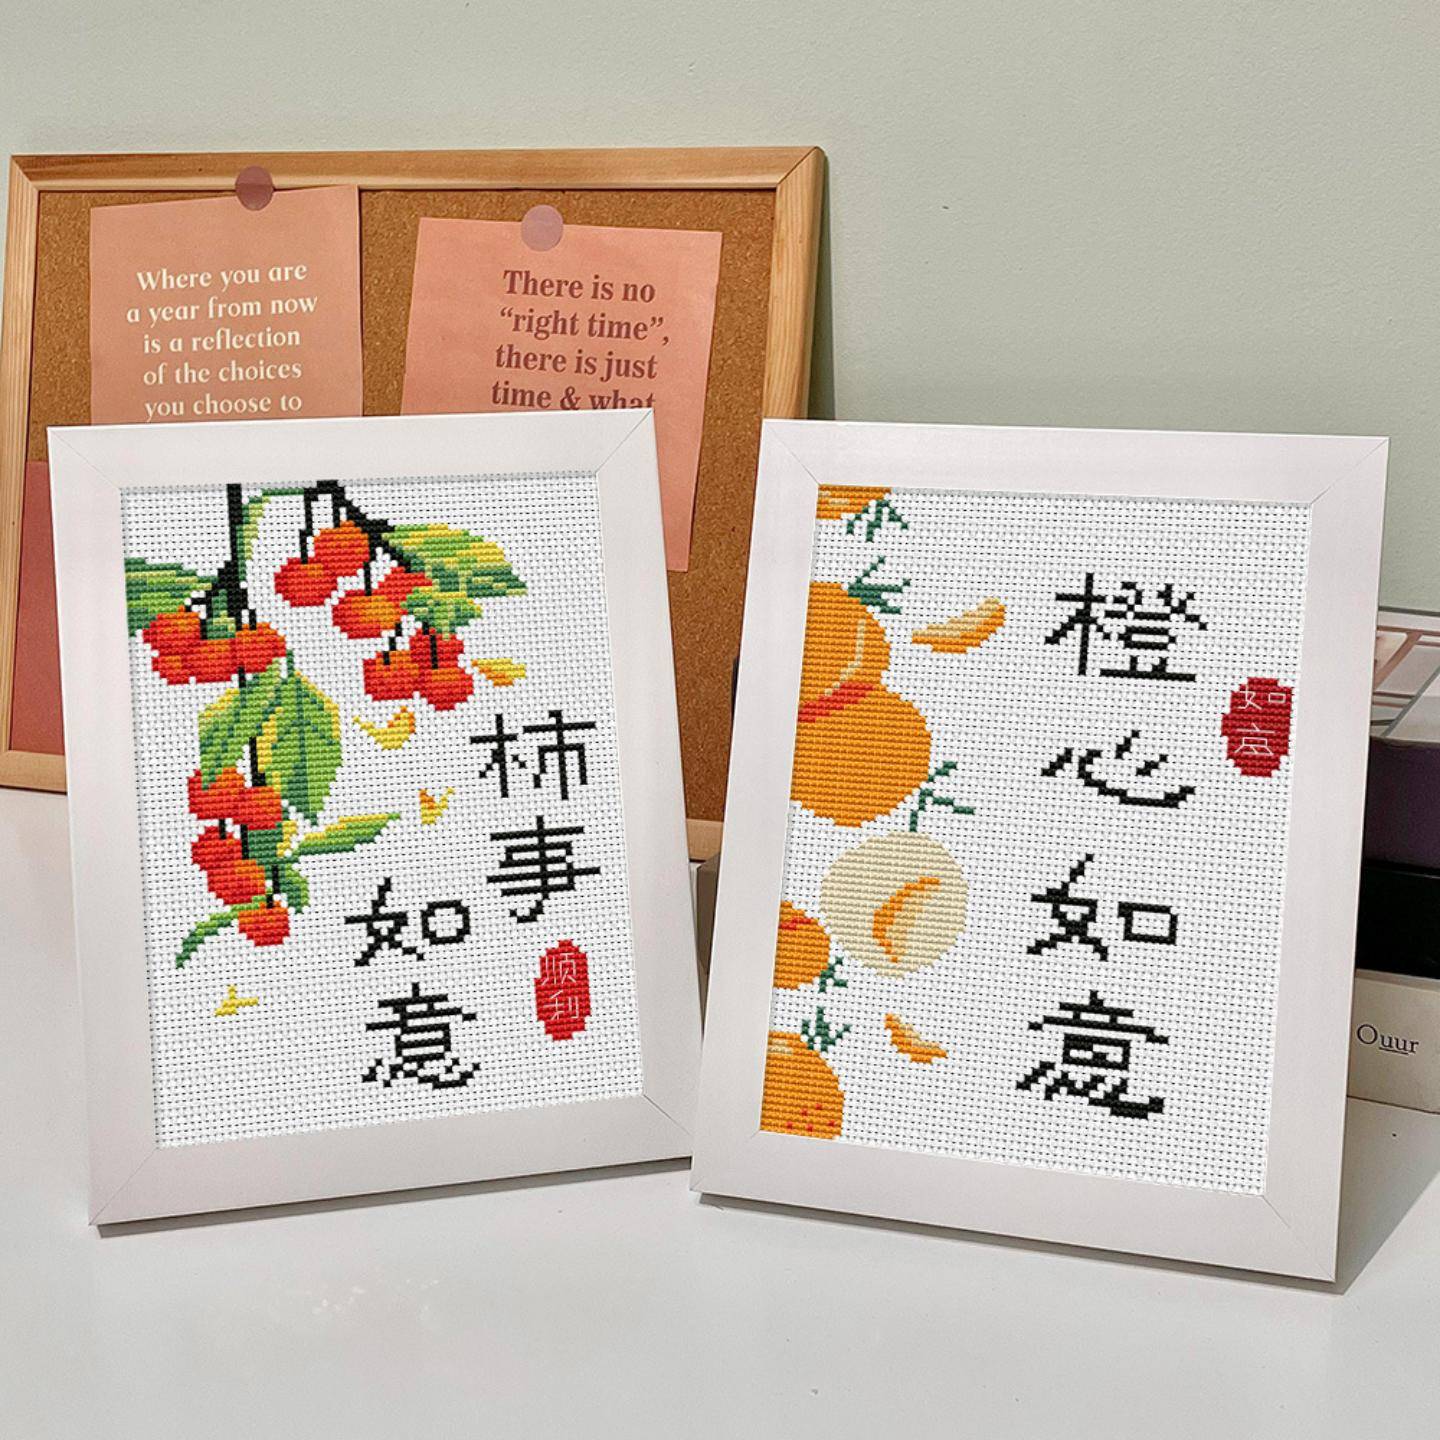 Where you are
a year from now
is a reflection
of the choices
you choose to
There is no
“right time”,
there is just
time & what
柿事
如意
顺利
橙心如意
如意
Ouur